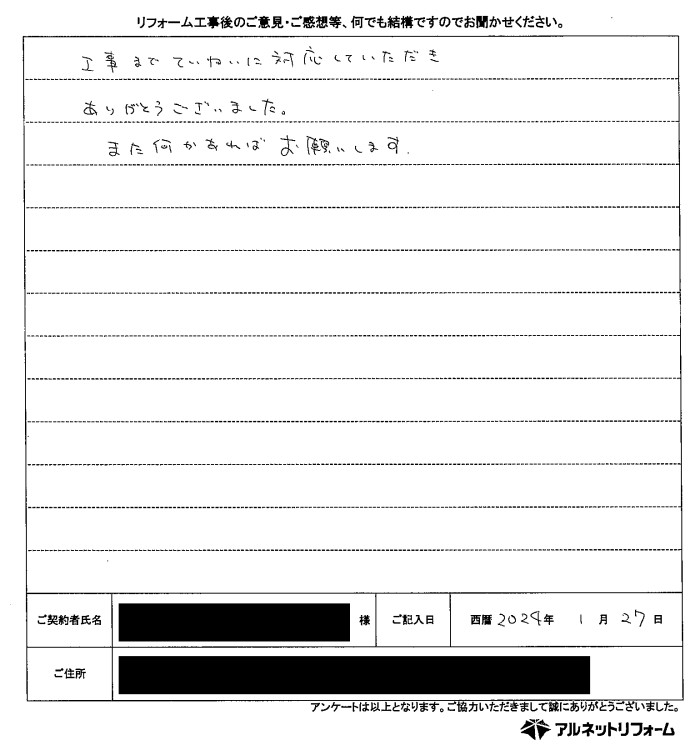 リフォーム工事後のご意見・ご感想等、何でも結構ですのでお聞かせください。
工事までていねいに対応していただき
ありがとうございました。
また何かあればお願いします.
ご契約者氏名 様 ご記入日 西暦2024年 1月27日
ご住所
アンケートは以上となります。ご協力いただきまして誠にありがとうございました。
アルネットリフォーム